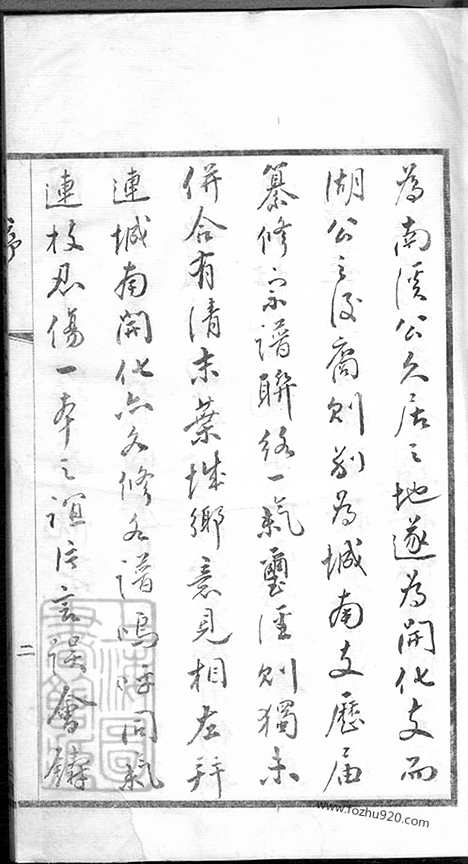 為南溪公久居之地遂為開化支而
湖公之後裔則別為城南支歷届
纂修宗譜聯絡一氣璽涇則獨未
併合有清末葉城鄉意見相左辞
連城南開化亦各修各譜嗚呼同氣
連枝忍傷一本之誼片言誤會
序
二
www.fozhu920.com